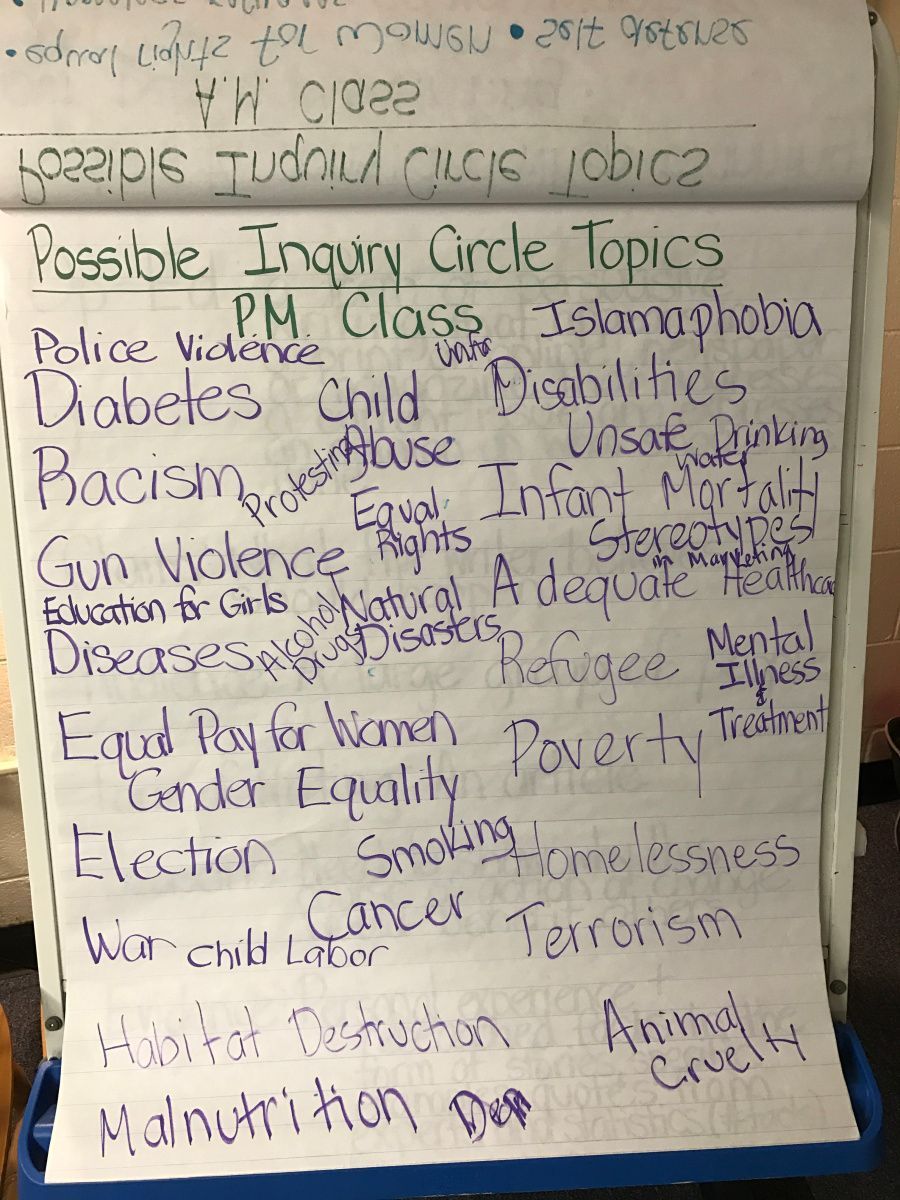 • Equal rights for women • self defense
A.M. Class
Possible Inquiry Circle Topics
Possible Inquiry Circle Topics
PM. Class
Islamaphobia
Police Violence
Diabetes
Child Abuse
Disabilities
Racism
Protesting
Unsafe Drinking Water
Equal Rights
Infant Mortality
Gun Violence
Stereotypes in Marketing
Education for Girls
Natural Disasters
Adequate Healthcar
Diseases
Alcohol
Drugs
Refugee
Mental Illness & Treatment
Equal Pay for Women
Poverty
Gender Equality
Election
Smoking
Homelessness
Cancer
War
Child Labor
Terrorism
Habitat Destruction
Animal Cruelty
Malnutrition